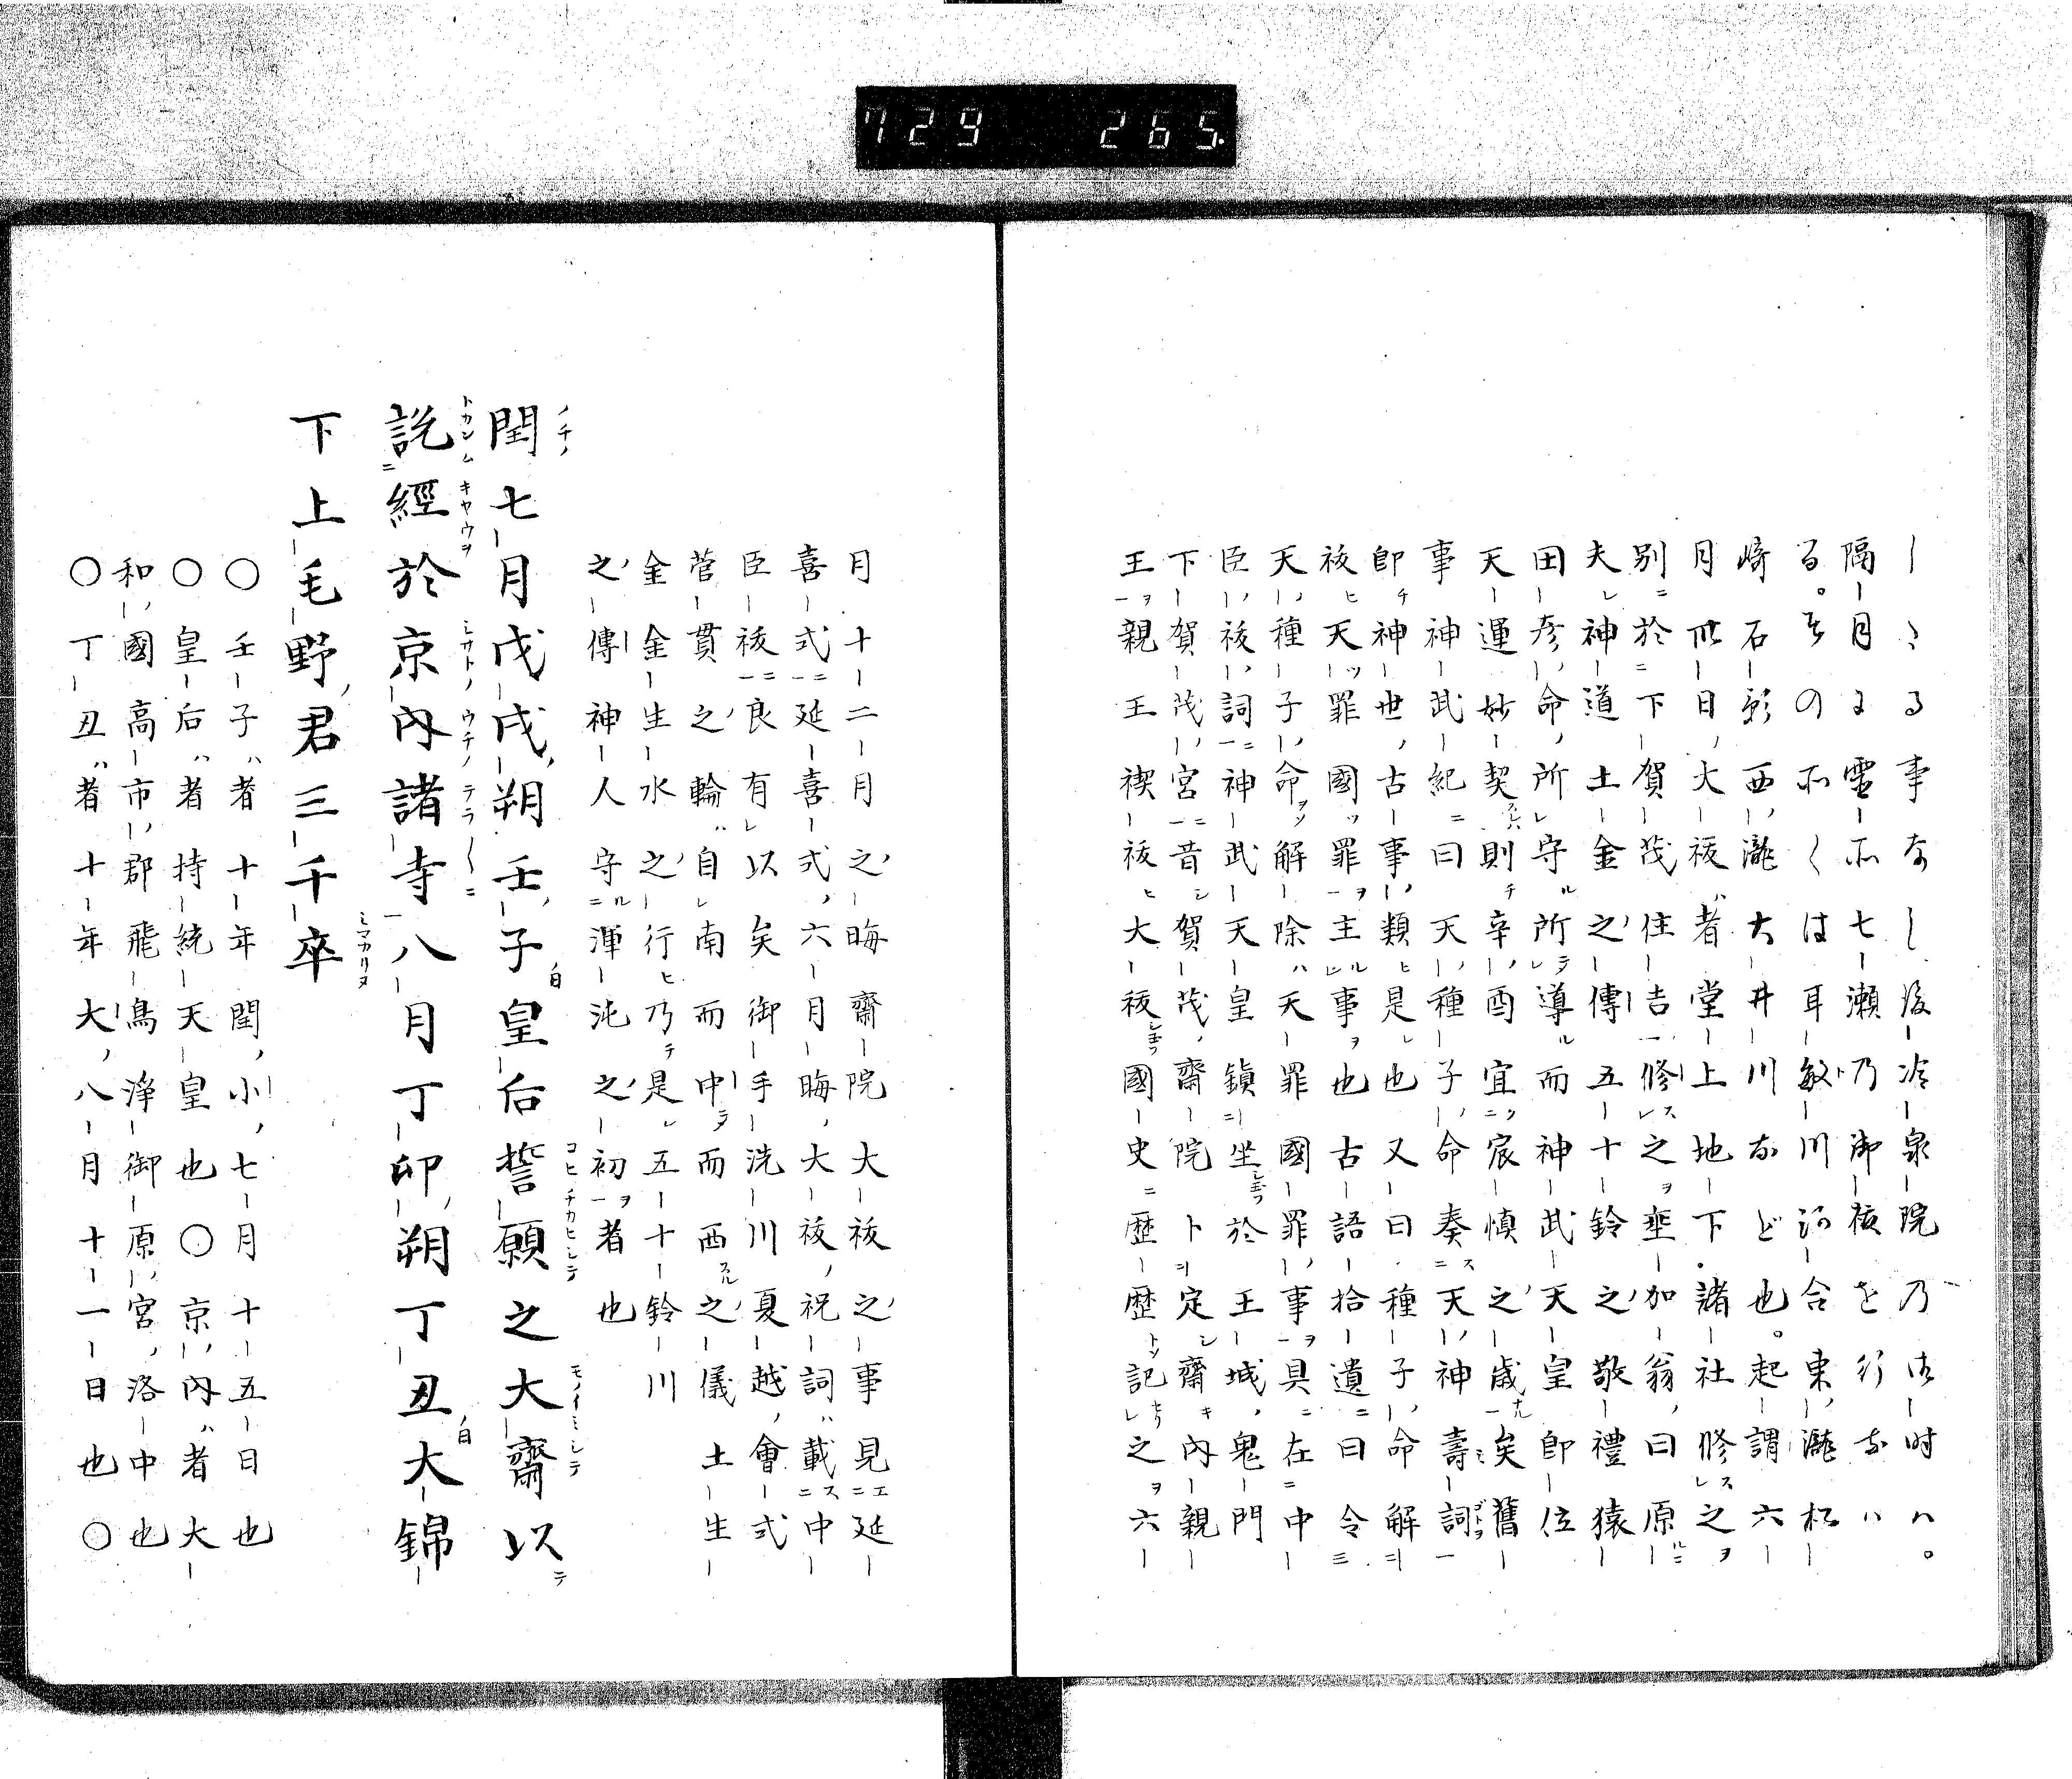 729 265.
しゝる事なし後冷泉院乃御時ハ。
隔月に霊所七瀬乃御祓を行なハ
る。その所〱は耳敏川河合東瀧松
崎石影西瀧大井川など也。起謂六
月卅日大祓者堂上地下諸社修之
別於下賀茂住吉修之埀加翁曰原
夫神道土金之傳五十鈴之敬禮猿
田彦命所守所導而神武天皇即位
天運妙契則辛酉宜宸慎之歳矣舊
事神武紀曰天種子命奏天神壽詞
即神世古事類是也又曰種子命解
祓天罪國罪主事也古語拾遺曰令
天種子命解除天罪國罪事具在中
臣祓詞神武天皇鎮坐於王城鬼門
下賀茂宮昔賀茂齋院卜定齋内親
王親王禊祓大祓國史歴歴記之六
月十二月之晦齋院大祓之事見延
喜式延喜式六月晦大祓祝詞載中
臣祓良有以矣御手洗川夏越會式
菅貫之輪自南而中而西之儀土生
金金生水之行乃是五十鈴川
之傳神人守渾沌之初者也
閏七月戊戌朔壬子皇后誓願之大齋以
說經於京内諸寺八月丁卯朔丁丑大錦
下上毛野君三千卒
〇壬子者十年閏小七月十五日也
〇皇后者持統天皇也〇京内者大
和國高市郡飛鳥淨御原宮洛中也
〇丁丑者十年大八月十一日也〇